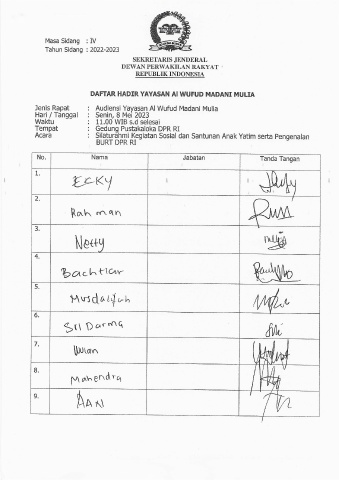 Masa Sidang : IV
Tahun Sidang : 2022-2023
SEKRETARIS JENDERAL
DEWAN PERWAKILAN RAKYAT
REPUBLIK INDONESIA
DAFTAR HADIR YAYASAN Al WUFUD MADANI MULIA
Jenis Rapat : Audiensi Yayasan Al Wufud Madani Mulia
Hari / Tanggal : Senin, 8 Mei 2023
Waktu : 11.00 WIB s.d selesai
Tempat : Gedung Pustakaloka DPR RI
Acara : Silaturahmi Kegiatan Sosial dan Santunan Anak Yatim serta Pengenalan
BURT DPR RI
No. Nama Jabatan Tanda Tangan
1. ECKY
2. Rahman
3. Netty
4. Bachtiar
5. Musdalifah
6. Sri Darma
7.
8. Mahendra
9. AAN